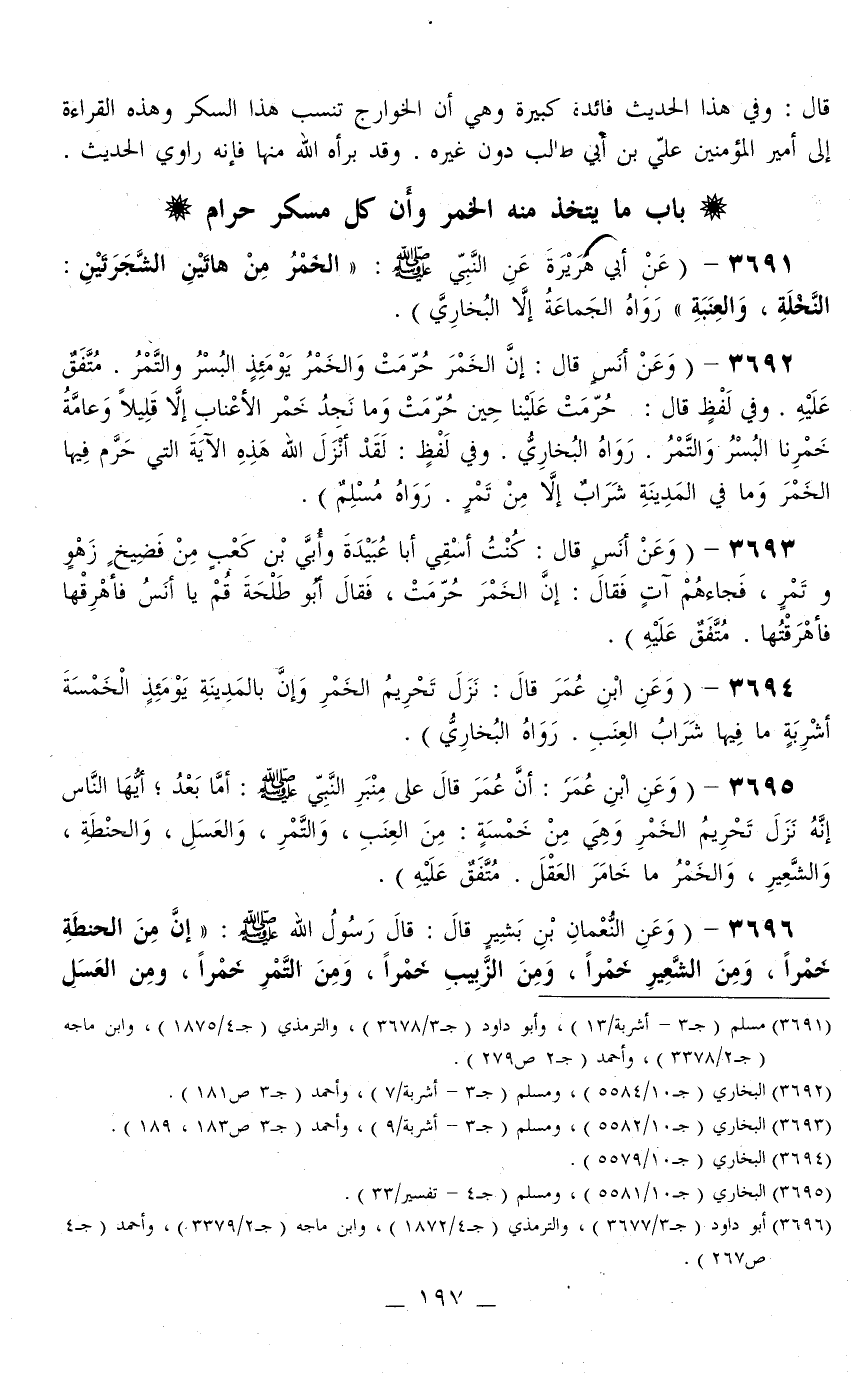 قال : وفي هذا الحديث فائدة كبيرة وهي أن الخوارج تنسب هذا السكر وهذه القراءة
إلى أمير المؤمنين عليّ بن أبي طالب دون غيره . وقد برأه الله منها فإنه راوي الحديث .
❋ باب ما يتخذ منه الخمر وأن كل مسكر حرام ❋
٣٦٩١ – ( عَنْ أبي هُرَيْرَةَ عَنِ النَّبِيّ ﷺ : « الخَمْرُ مِنْ هاتَيْنِ الشَّجَرَتَيْنِ :
النَّخْلَةِ ، وَالعِنَبَةِ » رَوَاهُ الجَماعَةُ إلَّا البُخاريَّ ) .
٣٦٩٢ – ( وَعَنْ أنَسٍ قال : إنَّ الخَمْرَ حُرّمَتْ وَالخَمْرُ يَوْمَئِذٍ البُسْرُ والتَّمْرُ . مُتَّفَقٌ
عَلَيْهِ . وفي لَفْظٍ قال : حُرّمَتْ عَلَيْنا حِين حُرّمَتْ وَما نَجِدُ خَمْر الأعْناب إلَّا قَلِيلاً وَعامَّةُ
خَمْرِنا البُسْرُ وَالتَّمْرُ . رَوَاهُ البُخاريُّ . وفي لَفْظٍ : لَقَدْ أنْزَلَ الله هَذِهِ الآيَةَ التي حَرَّم فِيها
الخَمْرَ وَما في المَدِينَةِ شَرَابٌ إلَّا مِنْ تَمْرٍ . رَوَاهُ مُسْلِمٌ ) .
٣٦٩٣ – ( وَعَنْ أنَسٍ قال : كُنْتُ أسْقِي أبا عُبَيْدَةَ وأُبيَّ بْن كَعْبٍ مِنْ فَضِيخٍ زَهْوٍ
و تَمْرٍ ، فَجاءهُمْ آتٍ فَقالَ : إنَّ الخَمْرَ حُرّمَتْ ، فَقالَ أبُو طَلْحَةَ قُمْ يا أنَسُ فأهْرِقْها
فأهْرَقْتُها . مُتَّفَقٌ عَلَيْهِ ) .
٣٦٩٤ – ( وَعَنِ ابْنِ عُمَرَ قالَ : نَزَلَ تَحْرِيمُ الخَمْرِ وَإنَّ بالمَدِينَةِ يَوْمَئِذٍ الْخَمْسَةَ
أشْرِبَةٍ ما فِيها شَرَابُ العِنَبِ . رَوَاهُ البُخارِيُّ ) .
٣٦٩٥ – ( وَعَنِ ابْنِ عُمَرَ : أنَّ عُمَرَ قالَ على مِنْبَرِ النَّبِيّ ﷺ : أمَّا بَعْدُ ؛ أيُّها النَّاس
إنَّهُ نَزَلَ تَحْرِيمُ الخَمْرِ وَهِيَ مِنْ خَمْسَةٍ : مِنَ العِنَبِ ، وَالتَّمْرِ ، وَالعَسَلِ ، وَالحِنْطَةِ ،
وَالشَّعِيرِ ، وَالخَمْرُ ما خامَرَ العَقْلَ . مُتَّفَقٌ عَلَيْهِ ) .
٣٦٩٦ – ( وَعَنِ النُّعْمانِ بْنِ بَشِيرٍ قالَ : قالَ رَسُولُ الله ﷺ : « إنَّ مِنَ الحنطَةِ
خَمْراً ، وَمِنَ الشَّعِيرِ خَمْراً ، وَمِنَ الزَّبِيبِ خَمْراً ، وَمِنَ التَّمْرِ خَمْراً ، ومِن العَسَلِ
(٣٦٩١) مسلم ( جـ٣ – أشربة/١٣ ) ، وأبو داود ( جـ٣٦٧٨/٣ ) ، والترمذي ( جـ١٨٧٥/٤ ) ، وابن ماجه
( جـ٣٣٧٨/٢ ) ، وأحمد ( جـ٢ ص٢٧٩ ) .
(٣٦٩٢) البخاري ( جـ٥٥٨٤/١٠ ) ، ومسلم ( جـ٣ – أشربة/٧ ) ، وأحمد ( جـ٣ ص١٨١ ) .
(٣٦٩٣) البخاري ( جـ٥٥٨٢/١٠ ) ، ومسلم ( جـ٣ – أشربة/٩ ) ، وأحمد ( جـ٣ ص١٨٣ ، ١٨٩ ) .
(٣٦٩٤) البخاري ( جـ٥٥٧٩/١٠ ) .
(٣٦٩٥) البخاري ( جـ٥٥٨١/١٠ ) ، ومسلم ( جـ٤ – تفسير/٣٣ ) .
(٣٦٩٦) أبو داود ( جـ٣٦٧٧/٣ ) ، والترمذي ( جـ١٨٧٢/٤ ) ، وابن ماجه ( جـ٣٣٧٩/٢ ) ، وأحمد ( جـ٤
ص٢٦٧ ) .
— ١٩٧ —